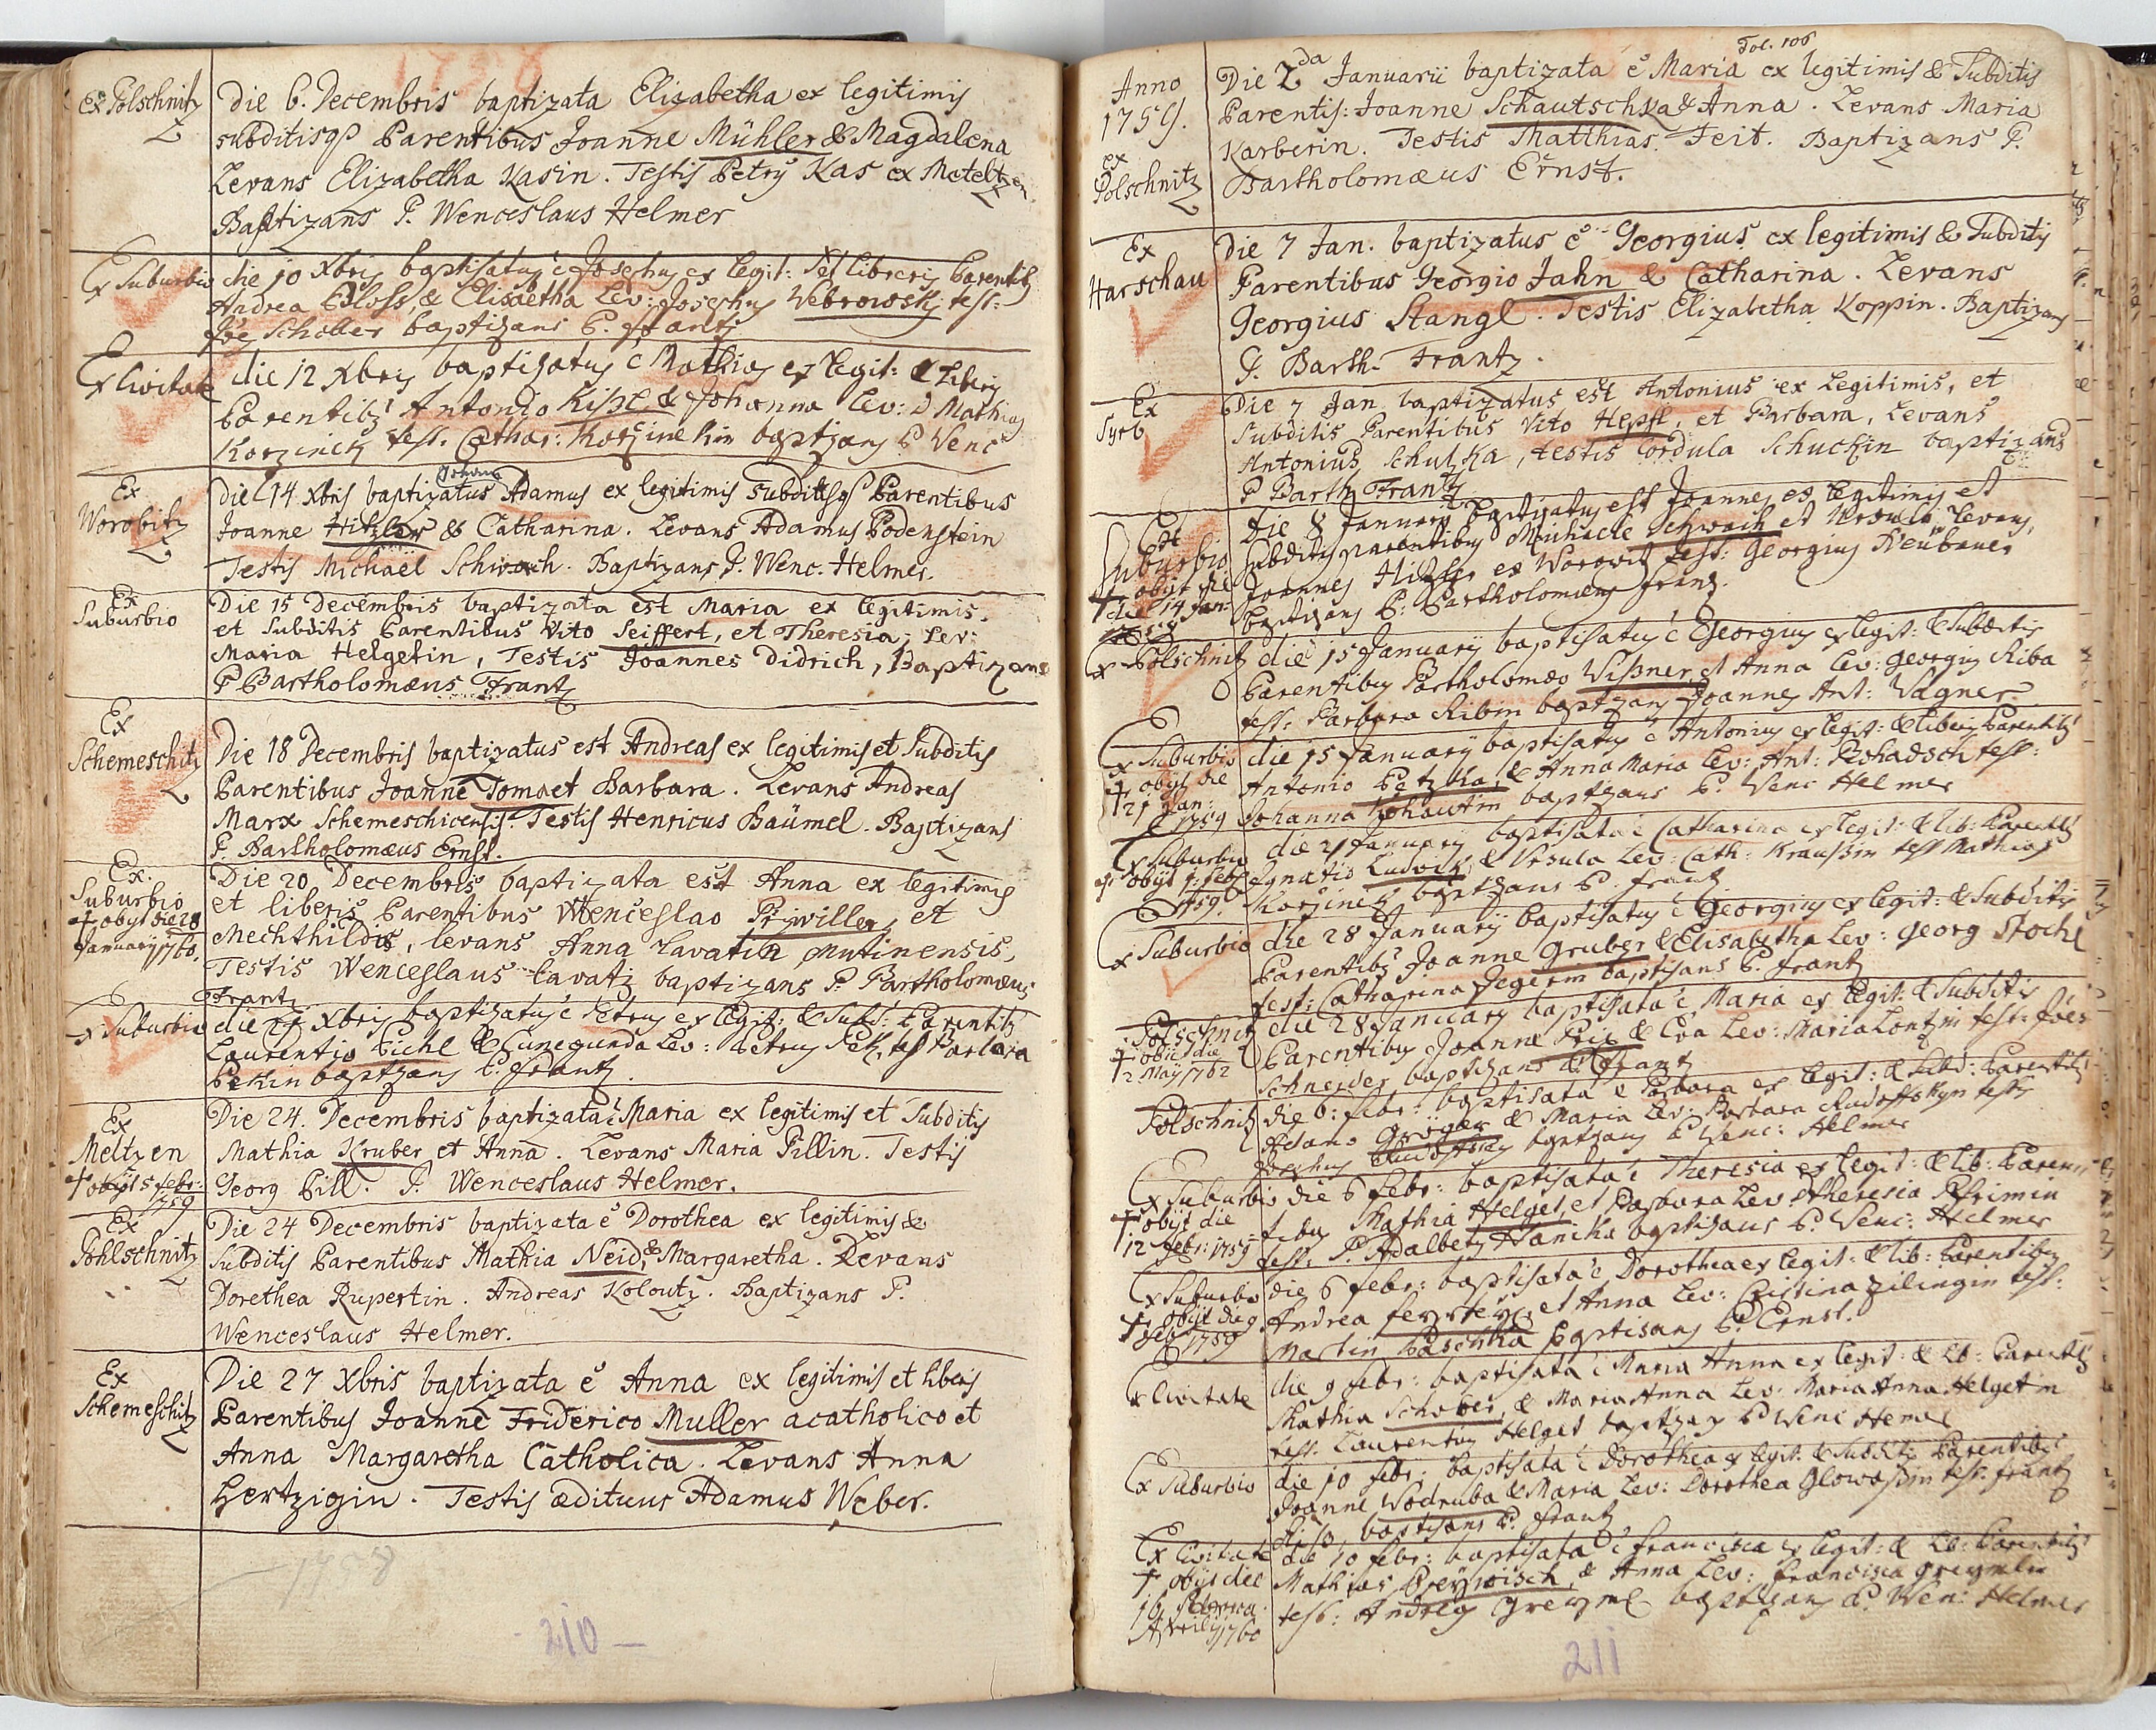 1758
Ex Polschnitz
Die 6. Decembris baptizata Elizabetha ex legitimis
subditisq3 Parentibus Joanne Mühler & Magdalena
Levans Elizabetha Kasin. Testis Petrus Kas ex Meteltzen
Baptizans P. Wenceslaus Helmer
Ex Suburbio
die 10 Xbris baptisatus ē Josephus ex legit: et liberis Parentib9
Andrea Bloss, & Elisaetha Lev: Josephus Webrowsky test:
Jōe Schober baptizans P. Frantz
Ex Civitate
die 12 Xbris baptisatus ē Mathias ex legit: & liberis
Parentib9 Antonio Kissl & Johanna lev: D Mathias
Korzinek test. Cathar: Korzinekin baptizans P Wenc
Ex
Worobitz
Joannes
Die 14 Xbris baptizatus Adamus ex legitimis subditisq3 Parentibus
Joanne Hitzler & Catharina. Levans Adamus Podenstein
Testis Michaël Schwach. Baptizans P. Wenc. Helmer.
Ex
Suburbio
Die 15 Decembris baptizata est Maria ex legitimis
et Subditis Parentibus Vito Seiffert, et Theresia, Lev:
Maria Helgetin, Testis Joannes Didrich, Baptizans
P Bartholomæus Frantz
Ex
Schemeschitz
Die 18 Decembris baptizatus est Andreas ex legitimis et Subditis
Parentibus Joanne Toma et Barbara. Levans Andreas
Marx Schemeschicensis. Testis Henricus Bäumel. Baptizans
P. Bartholomæus Ernst.
Ex.
Suburbio
† obijt die 28
January 1760.
Die 20 Decembris baptizata est Anna ex legitimis
et liberis Parentibus Wenceslao Prziwiller, et
Mechthildis, levans Anna Lavatin Mutinensis,
Testis Wenceslaus Lavatz baptizans P. Bartholomæus
Frantz
Ex Suburbio
die 21 Xbris baptizatus ē Petrus ex legit: & Subd: Parentib9
Laurentio Pichl & Cunegunda Lev: Petrus Pek, test Barbara
Pekin baptizans P. Frantz.
Ex
Meltzen
† obijt 5 febr:
1759
Die 24. Decembris baptizata ē Maria ex legitimis et Subditis
Mathia Kruber et Anna. Levans Maria Pillin. Testis
Georg Pill. P. Wenceslaus Helmer.
Ex
Pohlschnitz
Die 24 Decembris baptizata ē Dorothea ex legitimis &
Subditis Parentibus Mathia Neid, & Margaretha. Levans
Dorethea Rupertin. Andreas Koloutz. Baptizans P.
Wenceslaus Helmer.
Ex
Schemeschitz
Die 27 Xbris baptizata ē Anna ex legitimis et liberis
Parentibus Joanne Friderico Muller acatholico et
Anna Margaretha Catholica. Levans Anna
Hertzigin. Testis ædituus Adamus Weber.
1758
210 —
Fol. 106
Anno
1759.
ex
Polschnitz
Die 2da Januarii baptizata ē Maria ex legitimis & Subditis
Parentis: Joanne Schautschka & Anna. Levans Maria
Karberin. Testis Matthias Feit. Baptizans P.
Bartholomæus Ernst.
Ex
Harschau
Die 7 Jan. baptizatus ē Georgius ex legitimis & Subditis
Parentibus Georgio Jahn & Catharina. Levans
Georgius Stangl. Testis Elizabetha Koppin. Baptizans
P. Barth. Frantz.
Ex
Syrb
Die 7 Jan baptizatus est Antonius ex Legitimis, et
Subditis Parentibus Vito Hepfl, et Barbara, Levans
Antonius Schutzka, testis Cordula Schuckin baptizans
P Barth Frantz
Ex
Suburbio
† obijt die
14 Jan:
Die 8 January baptizatus est Joannes ex legitimis et
Subditis parentibus Michaele Schwach et Ursula, Levans
Joannes Hitzler ex Worowitz test: Georgius Neubauer
baptizans P: Bartholomæus Frantz.
Ex Polschnitz
die 15 January baptisatus ē Georgius ex legit: & Subditis
Parentibus Bartholomæo Wissner et Anna Lev: Georgius Riba
test. Barbara Ribin baptizans Joannes Ant: Wagner
Ex Suburbio
† obijt die
21 Jan:
1759
die 15 January baptisatus ē Antonius ex legit: & liberis Parentib9
Antonio Petzka, & Anna Maria Lev: Ant: Prohadsch test:
Johanna Kohautin baptizans P. Wenc Helmer
Ex Suburbio
† obijt 7 feb
1759.
die 21 January baptisata ē Catharina ex legit: & lib: Parentib9
Ignatio Ludwik, & Ursula Lev: Cath: Kraussin test Mathias
Korzinek baptizans P. Frantz
Ex Suburbio
die 28 January baptisatus ē Georgius ex legit: & Subditis
Parentib9 Joanne Gruber & Elisabetha Lev: Georg Stochl
test: Catharina Jegerin baptisans P. Frantz
Polschnitz
† obiit die
2 Maij 1762
die 28 January baptisata ē Maria ex legit: & Subditis
Parentibus Joanne Prix & Eva Lev: Maria Lontzin test: Jōes
Schneider baptizans P. Frantz
Polschnitz
die 6: febr: baptisata ē Barbara ex legit: & Subd: Parentib9
Adamo Gröger & Maria Lev: Barbara Rudoffskyn testis
baptizans P Wenc: Helmer
Ex Suburbio
† obijt die
12 febr: 1759
die 6 febr: baptisata ē Theresia ex legit: & lib: Paren-
tibus Mathia Helget, et Barbara Lev: Theresia
test. P. Adalbertus Hanika baptisans P. Wenc: Helmer
Ex Suburbio
† obijt die 9
feb 1759
die 6 febr: baptisata ē Dorothea ex legit: & lib: Parentibus
Andrea feyrfeyl, et Anna Lev: Cristina Zilingin test:
Martin Paschka baptisans P. Ernst.
Ex Civitate
die 9 febr: baptisata ē Maria Anna ex legit: & lib: Parentib9
Mathia Schober, & Maria Anna Lev: Maria Anna Helgetin
test. Laurentius Helget baptizans P Wenc Hemer
Ex Suburbio
die 10 febr: baptisata ē Dorothea ex legit: & Subditis Parentib9
Joanne Wodruba & Maria Lev: Dorothea Glowassin test. Frantz
baptisans P. Frantz
Ex Civitate
† obijt die
16
Aprilis 1760
die 10 febr: baptisata ē Francisca ex legit: & lib: Parentib9
Mathias Preywisch, & Anna Lev: Francisca Greymlin
test: Andreas Greyml baptizans P. Wen: Helmer
211